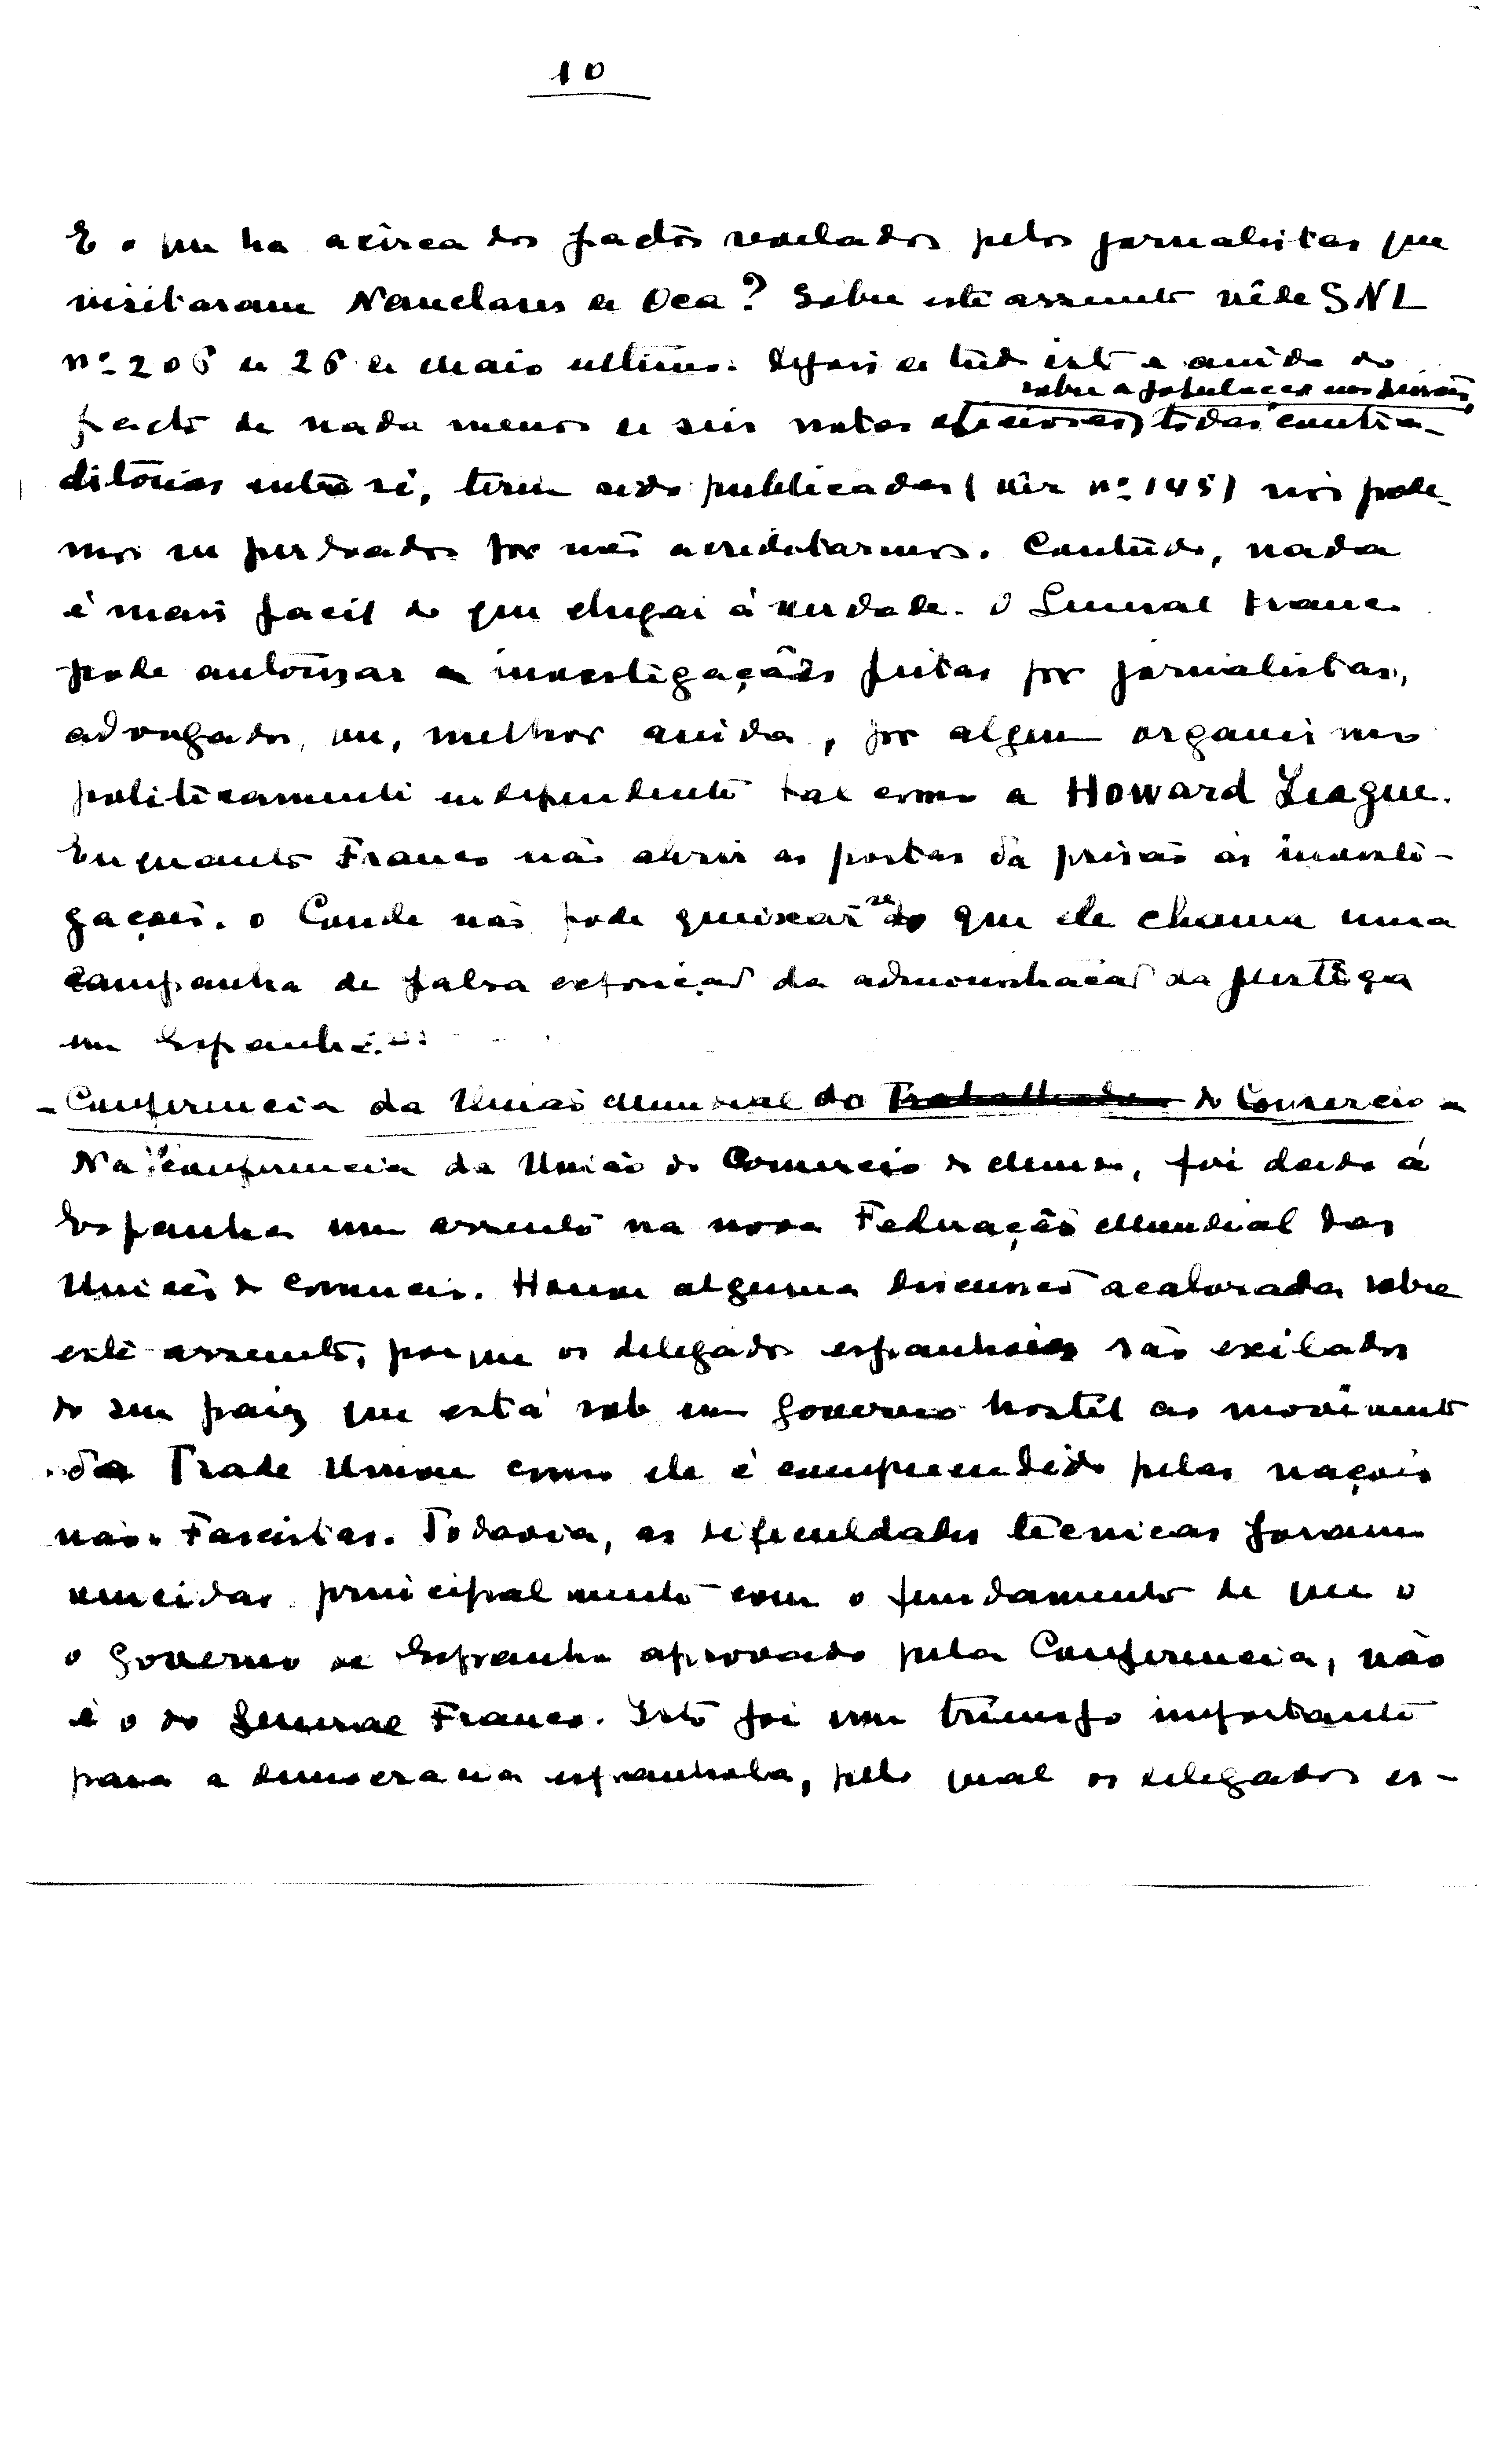 10
E o que ha acêrca dos factos revelados pelos jornalistas que
visitaram Nanclares de Oca? Sobre este assunto vêde SNL
nº 206 de 26 de Maio ultimo. Depois de tudo isto e ainda do
sobre a população nas prisões,
facto de nada menos de seis notas oficiosas, todas contra-
ditórias entre si, terem sido publicadas (ver nº 145) nós pode-
mos ser perdoados por não acreditarmos. Contudo, nada
é mais facil do que chegar á verdade. O General Franco
pode autorizar a investigação feitas por jornalistas,
advogados, ou, melhor ainda, por algum organismo
politicamente independente tal como a Howard League.
Enquanto Franco não abrir as portas da prisão ás investi-
gações. o Conde não pode queixar se do que ele chama uma
campanha de falsa exposição da administração da justiça
em Espanha."
- Conferencia da União Mundial do Trabalhador do Comercio -
Na conferencia da União do Comercio do Mundo, foi dado á
Espanha um assento na nova Federação Mundial das
Uniões do Comercio. Houve alguma discussão acalorada sobre
este assunto, porque os delegados espanhois são exilados
do seu paiz que está sob um governo hostil ao movimento
da Trade Union como ele é compreendido pelas nações
não-Fascistas. Todavia, as dificuldades técnicas foram
vencidas principalmente com o fundamento de que o
o governo de Espanha aprovado pela Conferencia, não
é o do General Franco. Isto foi um triunfo importante
para a democracia espanhola, pelo qual os delegados es-